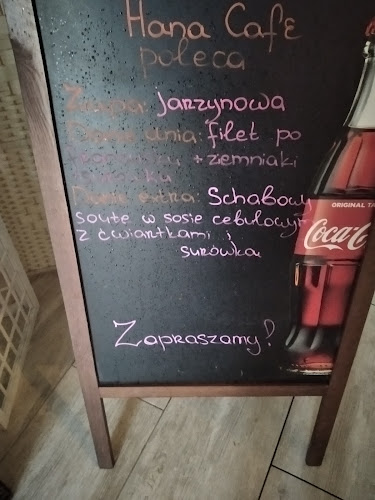 Hana Cafe
poleca
Zupa: jarzynowa
Danie dnia: filet po
+ ziemniaki
Danie extra: Schabowy
soute w sosie cebulowym
z ćwiartkami i
surówka
Zapraszamy!
ORIGINAL TA
Coca-C